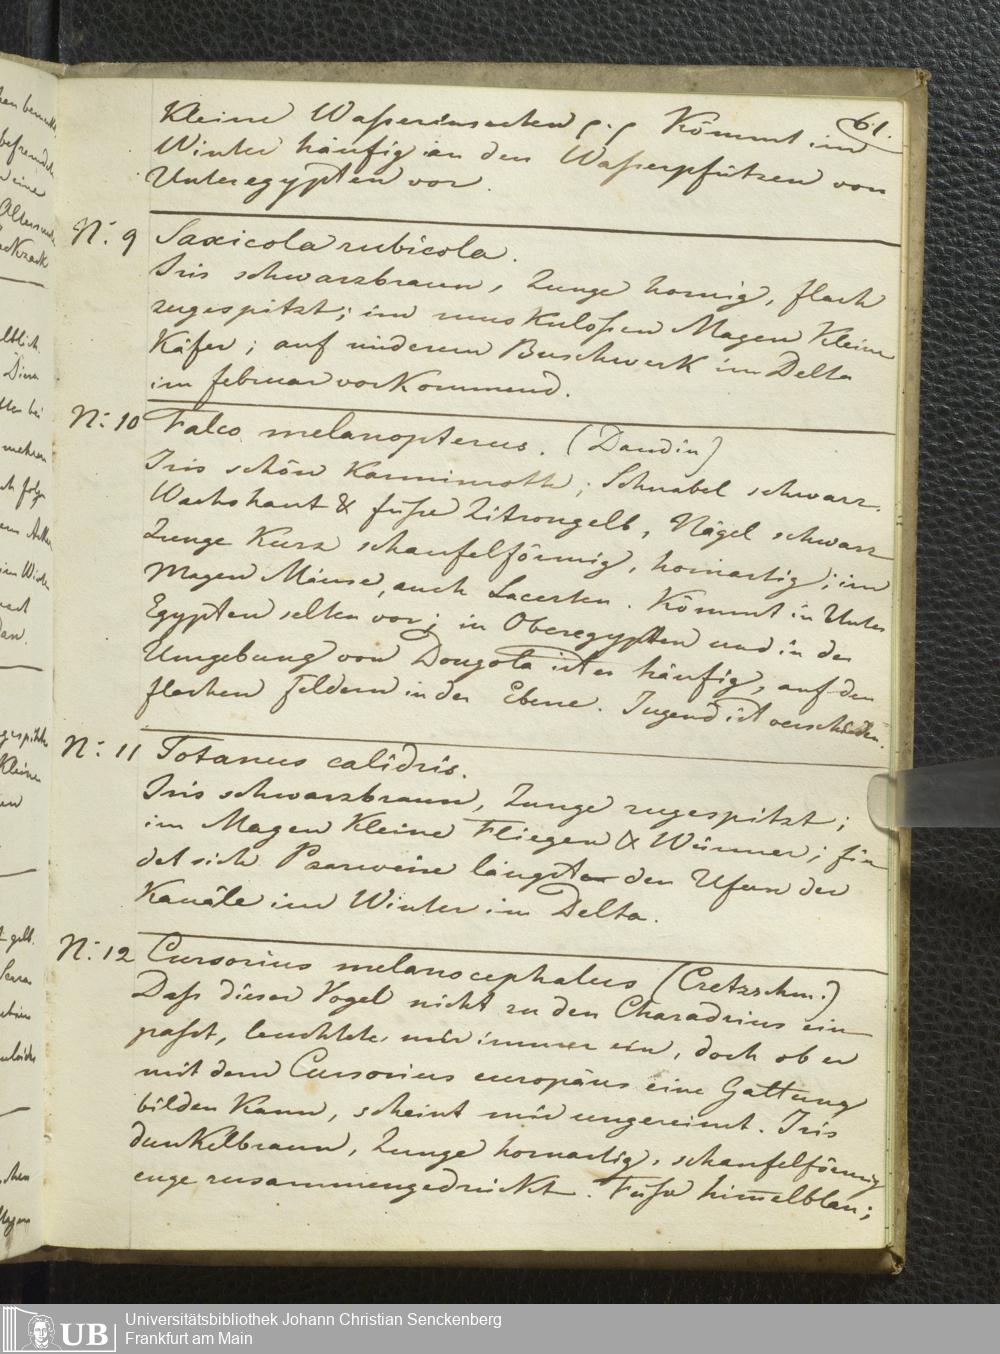 61.
Kleine Waßerinsecten p. p. Kömmt im
Winter häufig in den Waßerpfützen von
Unteregypten vor.
N: 9 Saxicola rubicola.
Iris schwarzbraun, Zunge hornig, flach
zugespitzt; im muskulosen Magen kleine
Käfer; auf niderem Buschwerk im Delta
im februar vorkommend.
N: 10 Falco melanopterus. (Daudin)
Iris schön Karminroth; Schnabel schwarz.
Wachshaut & füße Zitrongelb, Nägel schwarz
Zunge Kurz schaufelförmig, hornartig; im
Magen Mäuse, auch Lacerten. Kömmt in Unter
Egypten selten vor; in Oberegypten und in der
Umgebung von Dongola ist er häufig, auf den
flachen Feldern in der Ebene. Jugend ist verschieden.
N: 11 Totanus calidris.
Iris schwarzbraun, Zunge zugespitzt;
im Magen Kleine Fliegen & Würmer; fin
det sich Paarweise längst den Ufern der
Kanäle im Winter im Delta.
N: 12 Cursorius melanocephalus (Cretzschm.)
Daß dieser Vogel nicht zu den Charadrius ein
paßt, leuchtete mir immer ein, doch ob er
mit dem Cursorius europäus eine Gattung
bilden Kann, scheint mir ungereimt. Iris
dunkelbraun, Zunge hornartig, schaufelförmig
enge zusammengedrückt. Füße himelblau;
UB
Universitätsbibliothek Johann Christian Senckenberg
Frankfurt am Main